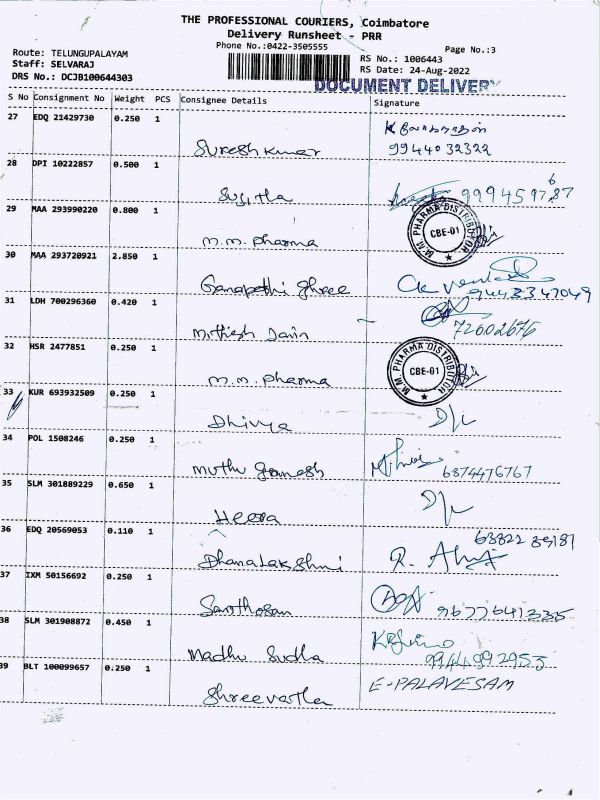 THE PROFESSIONAL COURIERS, Coimbatore
Delivery Runsheet - PRR
Phone No.:0422-3505555
Page No.:3
Route: TELUNGUPALAYAM
Staff: SELVARAJ
DRS No.: DCJB100644303
RS No.: 1006443
RS Date: 24-Aug-2022
DOCUMENT DELIVERY
S No Consignment No Weight PCS Consignee Details Signature
27 EDQ 21429730 0.250 1
Suresh kumar 9944032322
28 DPI 10222857 0.500 1
Sujitha
29 MAA 293990220 0.800 1
M.M. Pharma
M.M. PHARMA DISTRIBUTOR
CBE-01
30 MAA 293720921 2.850 1
Ganapathi Shree
9443347049
31 LDH 700296360 0.420 1
Mithish Jain 72602676
32 HSR 2477851 0.250 1
M.M. Pharma
M.M. PHARMA DISTRIBUTOR
CBE-01
33 KUR 693932509 0.250 1
Dhivya D/L
34 POL 1508246 0.250 1
Muthu Ganesh 6374476767
35 SLM 301889229 0.650 1
Heera D/L
36 EDQ 20569053 0.110 1
Dhanalakshmi
37 IXM 50156692 0.250 1
Santhosan 9677641335
38 SLM 301908872 0.450 1
Madhu Sudha 9944992953
39 BLT 100099657 0.250 1
Shreevastha E-PALAVESAM